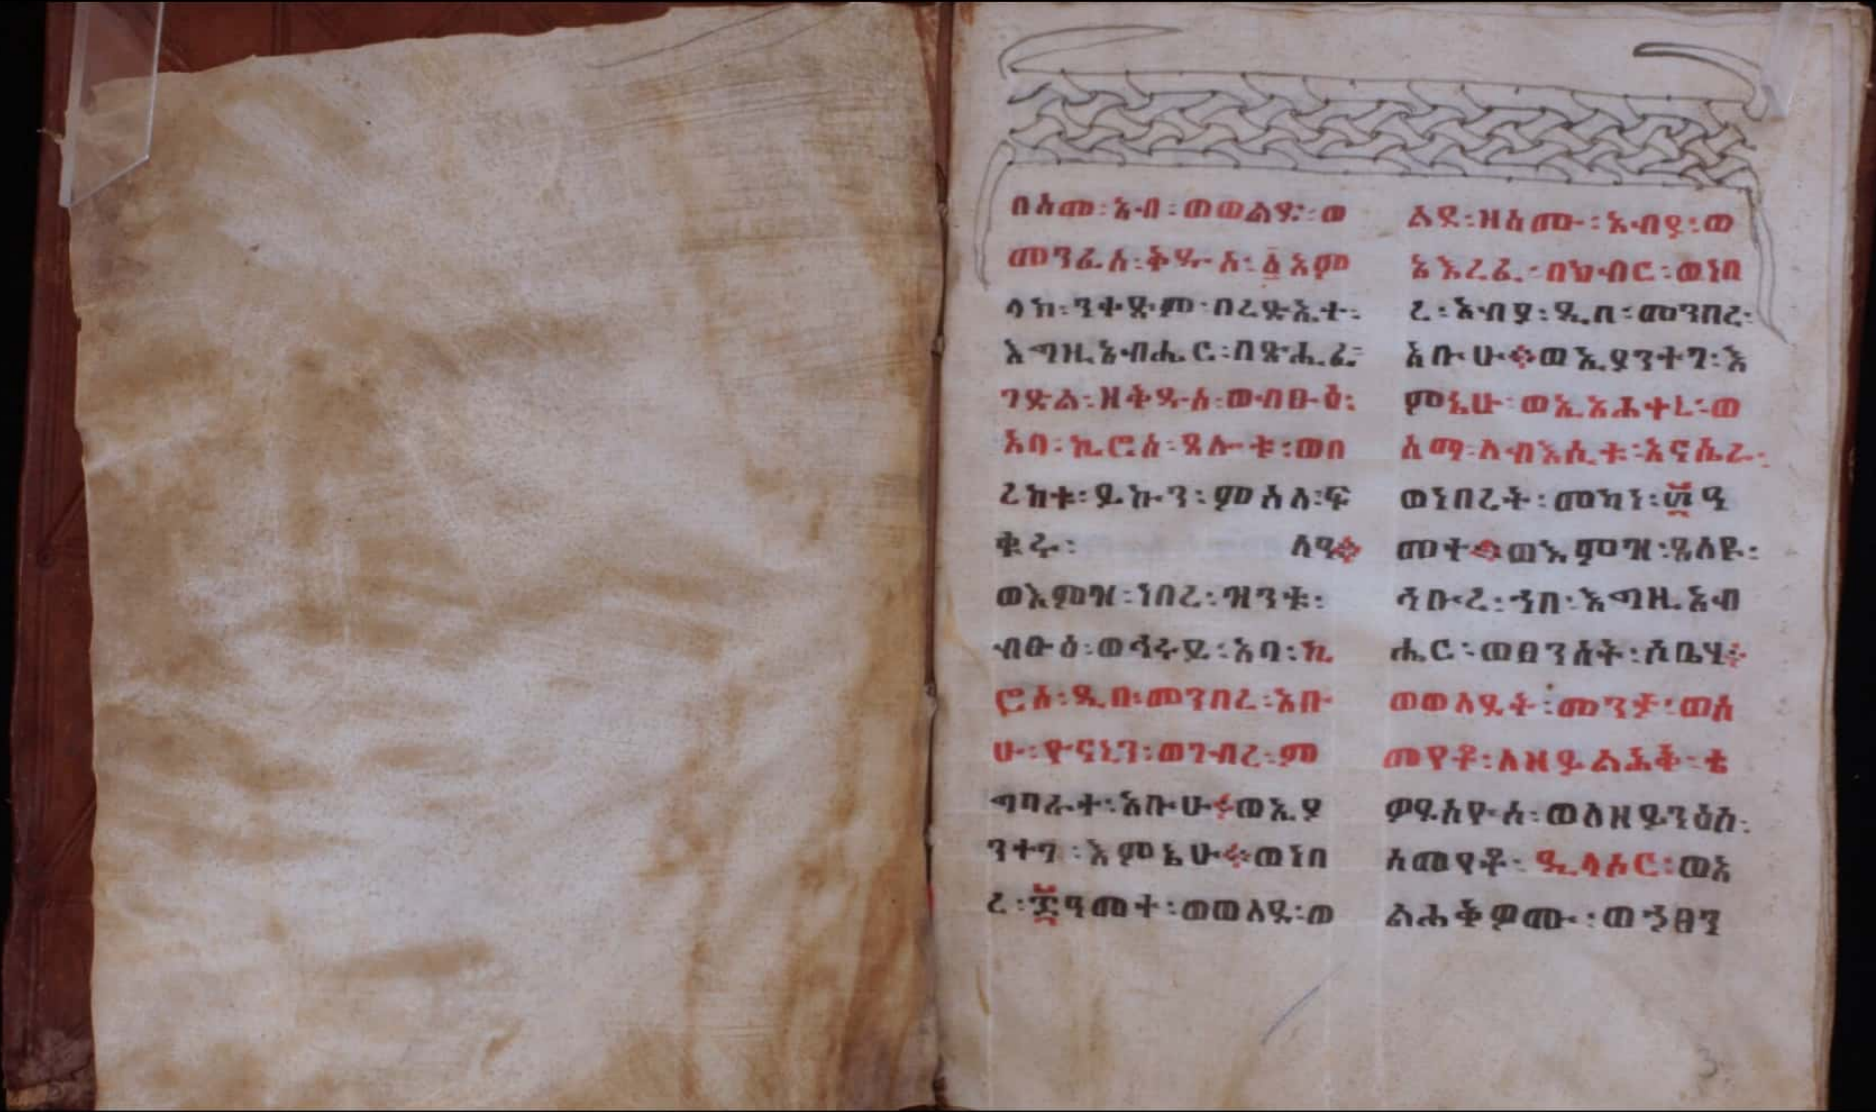 በስመ፡አብ፡ወወልድ፡ወ
መንፈስ፡ቅዱስ፡፩አም
ላክ፡ንቀድም፡በረድኤተ፡
እግዚአብሔር፡በጽሒፈ፡
ገድል፡ዘቅዱስ፡ወብፁዕ፡
አባ፡ኪሮስ፡ጸሎቱ፡ወበ
ረከቱ፡ይኩን፡ምስለ፡ፍ
ቁሩ፡ ለዓ።
ወእምዝ፡ነበረ፡ዝንቱ፡
ብፁዕ፡ወኅሩይ፡አባ፡ኪ
ሮስ፡ዲበ፡መንበረ፡አቡ
ሁ፡ዮናኒን፡ወገብረ፡ም
ግባራተ፡አቡሁ።ወኢያ
ንተገ፡እምኔሁ።ወነበ
ረ፡፳ዓመተ፡ወወለደ፡ወ
ልደ፡ዘስሙ፡አብያ፡ወ
አእረፈ፡በክብር፡ወነበ
ረ፡አብያ፡ዲበ፡መንበረ፡
አቡሁ።ወኢያንተገ፡እ
ምኔሁ፡ወኢአሕፀረ፡ወ
ስማ፡ለብእሲቱ፡አናሴራ፡
ወነበረት፡መካነ፡፴ዓ
መተ።ወእምዝ፡ጸለዪ፡
ኅቡረ፡ኀበ፡እግዚአብ
ሔር፡ወፀንሰት፡ሶቤሃ።
ወወለደት፡መንታ፡ወሰ
መየቶ፡ለዘይልሕቅ፡ቴ
ዎዳስዮስ፡ወለዘይንዕስ፡
ሰመየቶ፡ዲላሶር፡ወአ
ልሐቅዎሙ፡ወኀፀን
3